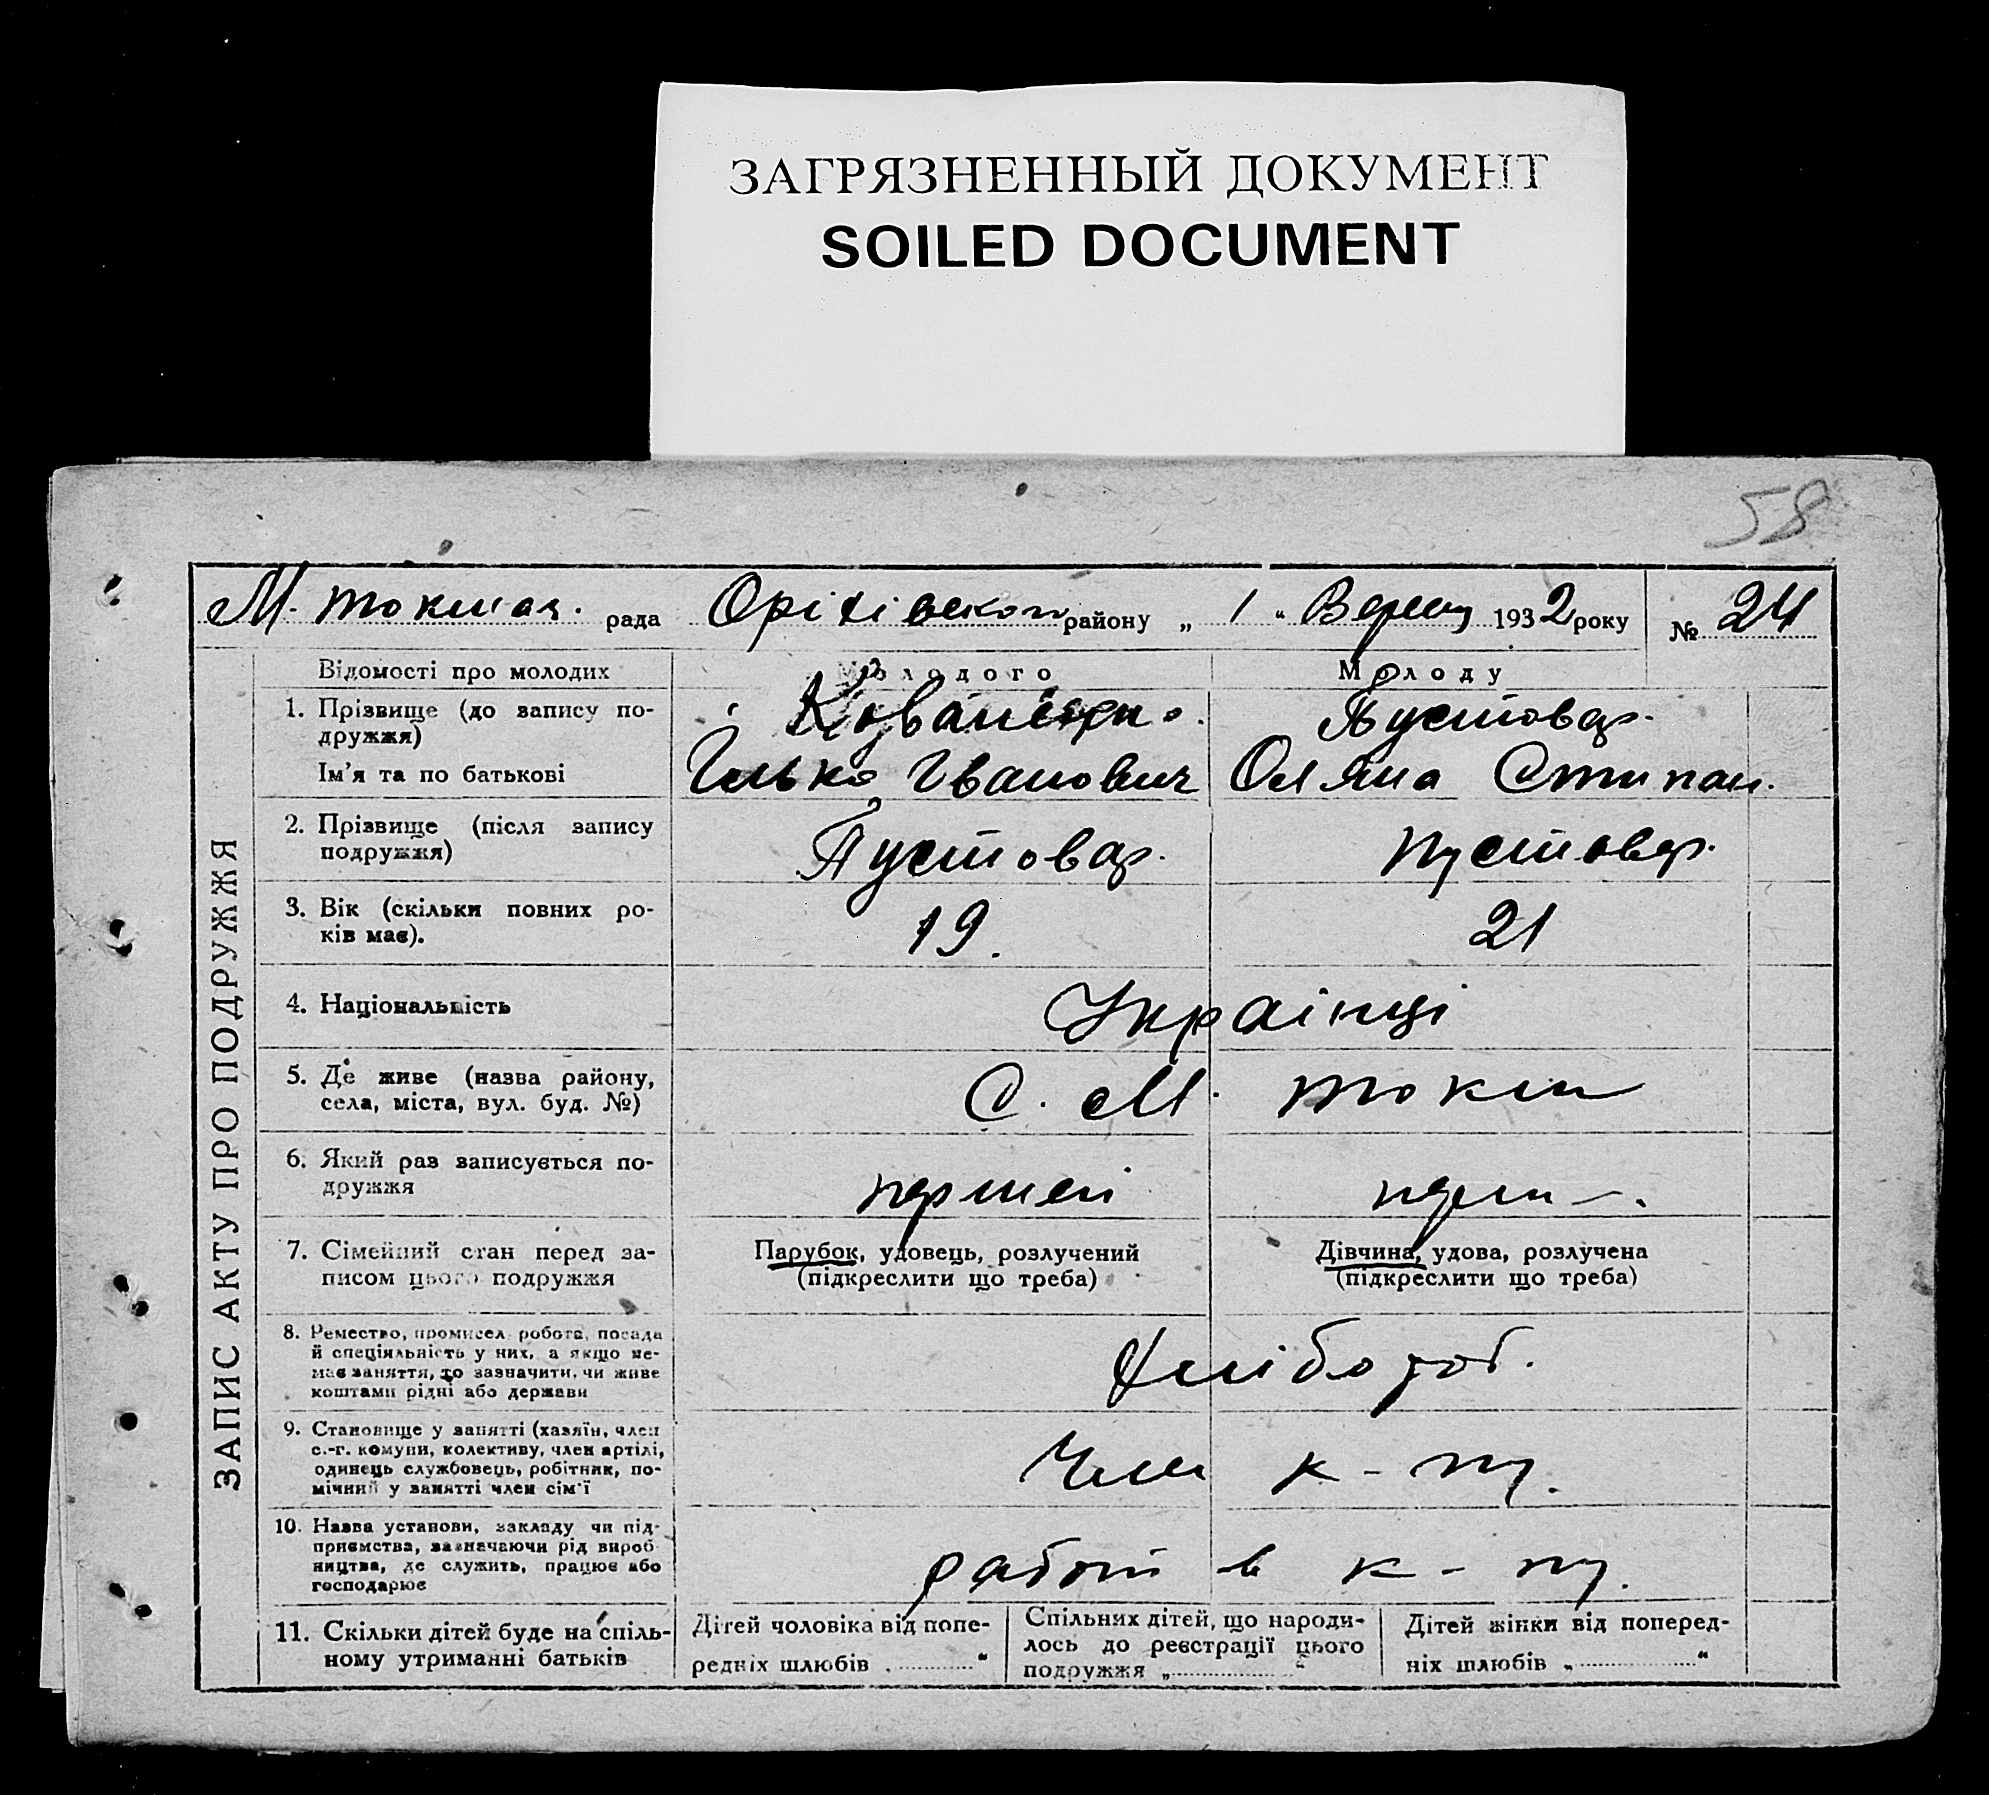 ЗАГРЯЗНЕННЫЙ ДОКУМЕНТ
SOILED DOCUMENT
58
М. токмач. рада Оріхівського району „ 1 “ Верес 1932 року № 24
ЗАПИС АКТУ ПРО ПОДРУЖЖЯ
Відомості про молодих
Молодого
Молоду
1. Прізвище (до запису по-
дружжя)
Пустовар.
Ім'я та по батькові
Ілько Іванович
Оляна Степан.
2. Прізвище (після запису
подружжя)
Пустовар.
Пустовар.
3. Вік (скільки повних ро-
ків має).
19.
21
4. Національність
Українці
5. Де живе (назва району,
села, міста, вул. буд. №)
С. М. токм
6. Який раз записується по-
дружжя
перший
перш—.
7. Сімейний стан перед за-
писом цього подружжя
Парубок, удовець, розлучений
(підкреслити що треба)
Дівчина, удова, розлучена
(підкреслити що треба)
8. Ремество, промисел робота, посада
й спеціяльність у них, а якщо не-
має заняття, то зазначити, чи живе
коштами рідні або держави
Хлібороб.
9. Становище у занятті (хазяїн, член
с.-г. комуни, колективу, член артілі,
одинець службовець, робітник, по-
мічний у занятті член сім'ї
Член к-пу.
10. Назва установи, закладу чи під-
приємства, зазначаючи рід вироб-
ництва, де служить, працює або
господарює
работ в к-пу.
11. Скільки дітей буде на спіль-
ному утриманні батьків
Дітей чоловіка від попе-
редніх шлюбів „ “
Спільних дітей, що народи-
лось до реєстрації цього
подружжя „ “
Дітей жінки від поперед-
ніх шлюбів „ “